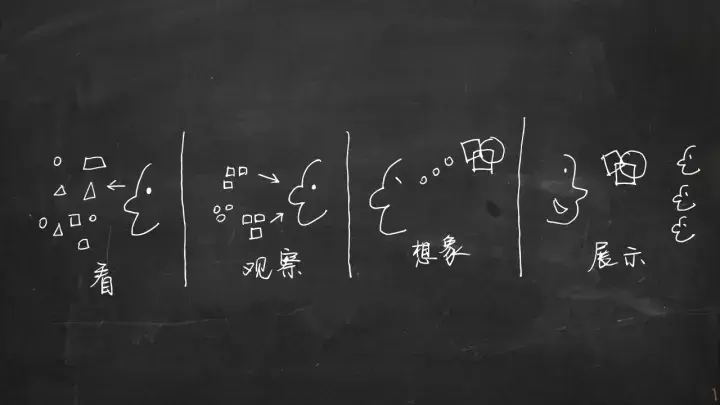 看
观察
想象
展示